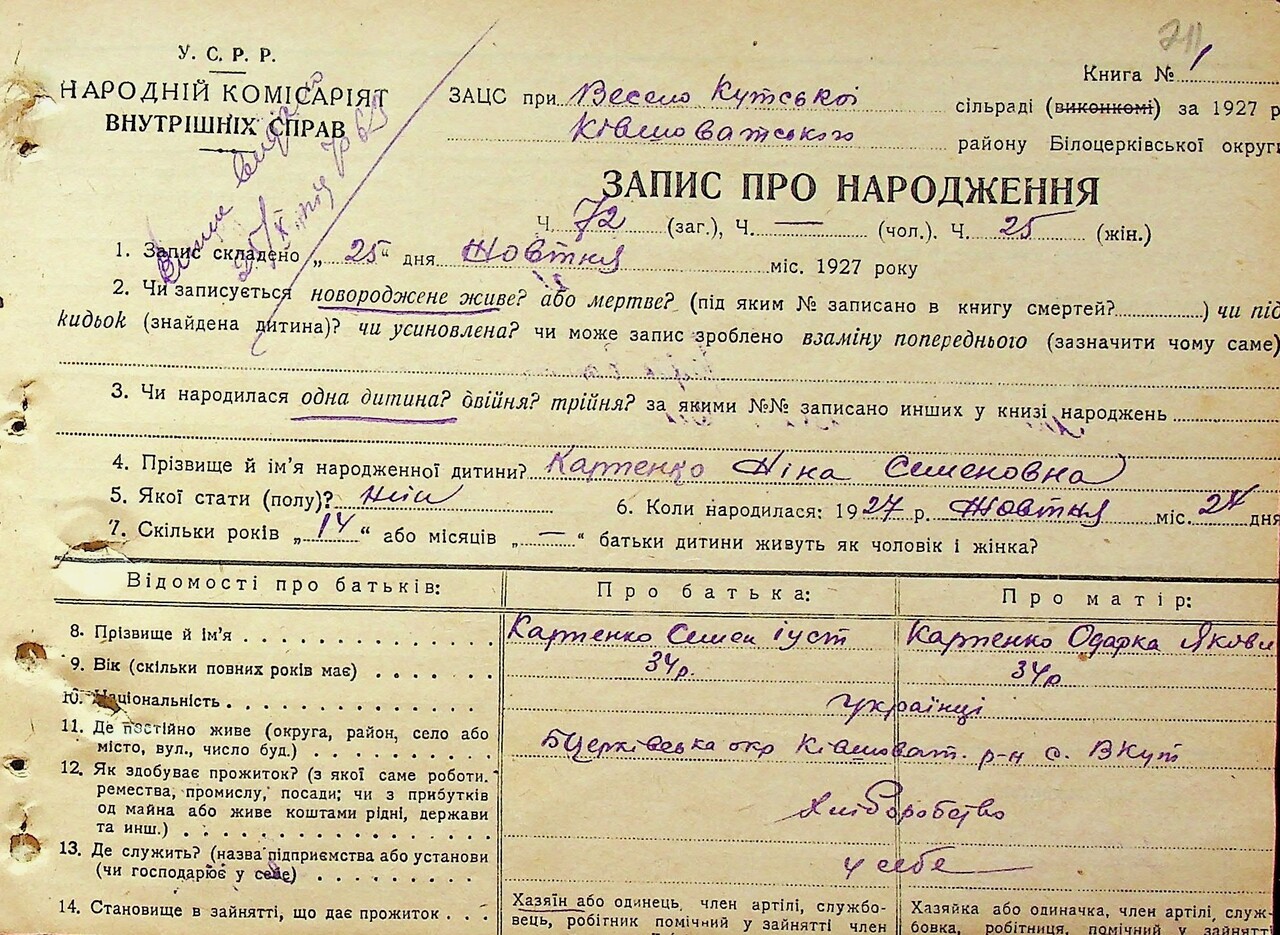 У. С. Р. Р.
НАРОДНІЙ КОМІСАРІЯТ
ВНУТРІШНІХ СПРАВ
Книга № 1
ЗАЦС при Весело Кутській сільраді (виконкомі) за 1927 р
Ківшоватського району Білоцерківської округи
ЗАПИС ПРО НАРОДЖЕННЯ
Ч. 72 (заг.), Ч. — (чол.). Ч. 25 (жін.)
1. Запис складено „ 25 “ дня Жовтня міс. 1927 року
2. Чи записується новороджене живе? або мертве? (під яким № записано в книгу смертей? ) чи під
кидьок (знайдена дитина)? чи усиновлена? чи може запис зроблено взаміну попереднього (зазначити чому саме)
3. Чи народилася одна дитина? двійня? трійня? за якими №№ записано инших у книзі народжень
4. Прізвище й ім'я народженної дитини? Карпенко Ніна Семеновна
5. Якої стати (полу)? жін 6. Коли народилася: 1927 р. Жовтня міс. 24 дня
7. Скільки років „ 14 “ або місяців „ — “ батьки дитини живуть як чоловік і жінка?
Відомості про батьків: Про батька: Про матір:
8. Прізвище й ім'я Карпенко Семен Іуст Карпенко Одарка Якови
9. Вік (скільки повних років має) 34р. 34р
10. Національність українці
11. Де постійно живе (округа, район, село або
місто, вул., число буд.) БЦерківська окр Ківшоват. р-н с. ВКут
12. Як здобуває прожиток? (з якої саме роботи.
ремества, промислу, посади; чи з прибутків
од майна або живе коштами рідні, держави
та инш.) Хліборобство
13. Де служить? (назва підприємства або установи
(чи господарює у себе) у себе
14. Становище в зайнятті, що дає прожиток . . . Хазяїн або одинець, член артілі, службо- Хазяйка або одиначка, член артілі, служ-
вець, робітник помічний у зайнятті член бовка, робітниця, помічний у зайнятті